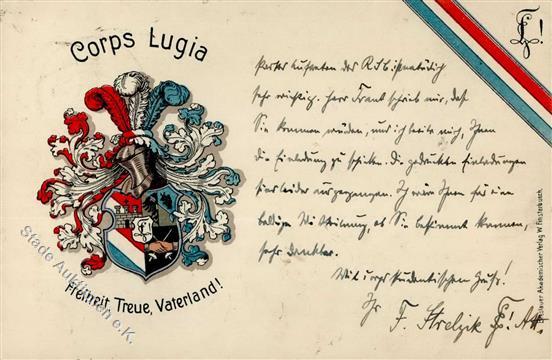 Corps Lugia
Freiheit, Treue, Vaterland!
sehr wichtig. Herr Frank schrieb mir, daß
Sie kommen würden, und ich beeile mich, Ihnen
die Einladung zu schicken. Die gedruckten Einladungen
sind leider ausgegangen. Ich wäre Ihnen für eine
baldige Mitteilung, ob Sie bestimmt kommen,
sehr dankbar.
Mit
Ihr F. Strelzik
Breslauer Akademischer Verlag W. Finsterbusch.
Stade Auktionen e.K.